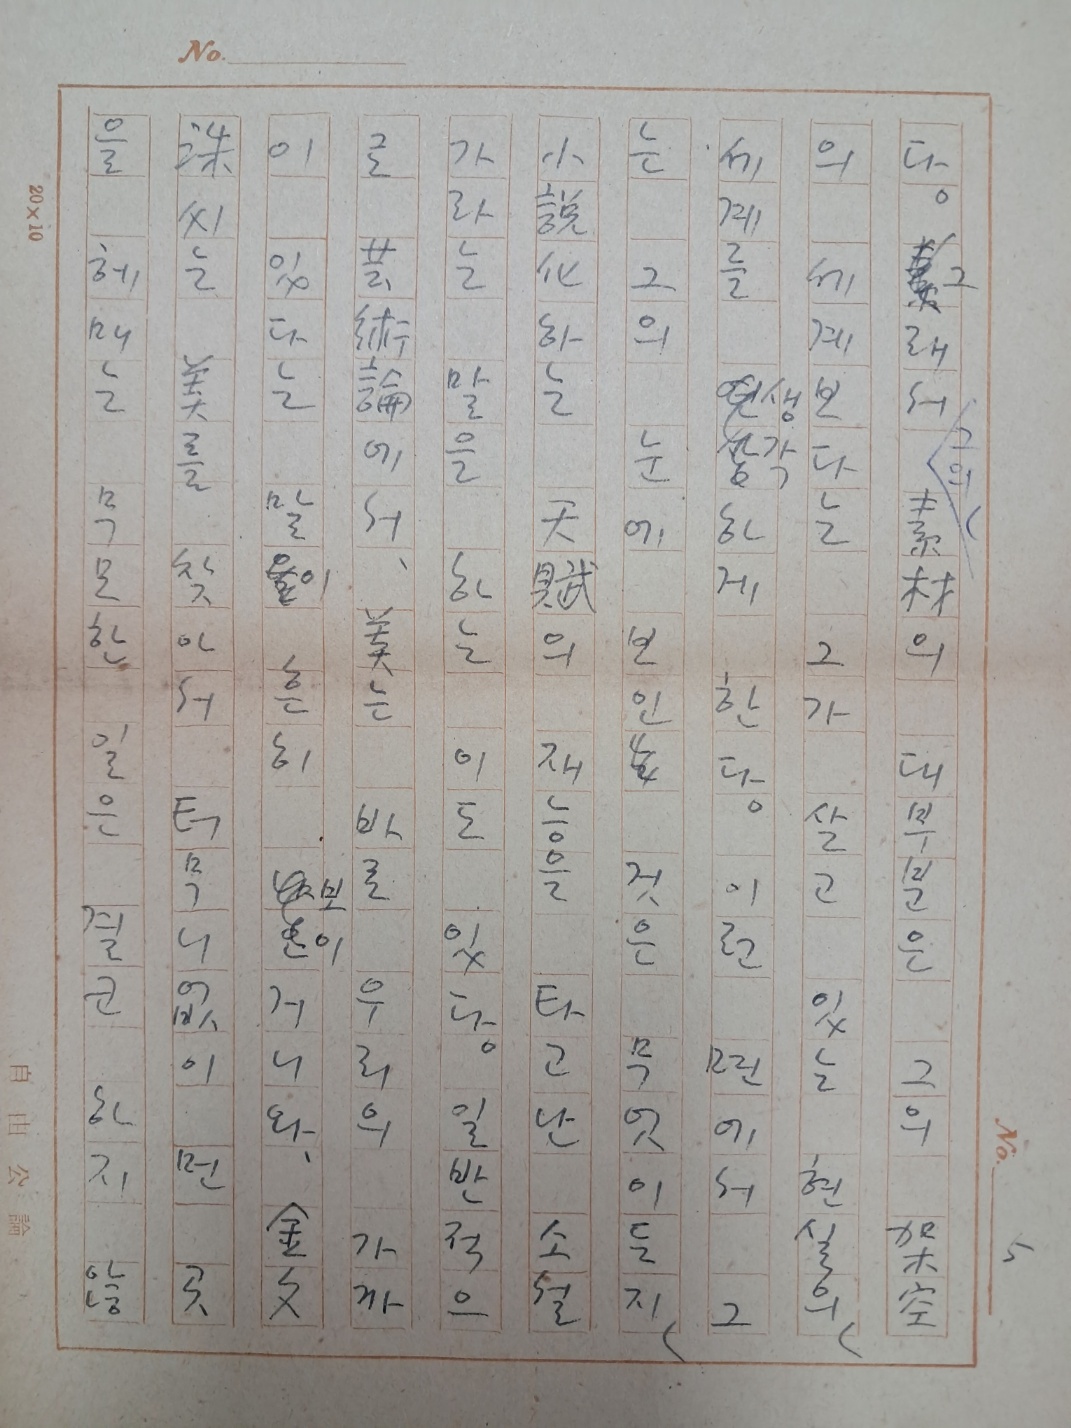 No. 5
다。그래서 그의 素材의 대부분은 그의 架空
의 세계보다는 그가 살고 있는 현실의
세계를 생각하게 한다。이런 면에서 그
는 그의 눈에 보인 것은 무엇이든지
小說化하는 天賦의 재능을 타고난 소설
가라는 말을 하는 이도 있다。일반적으
로 芸術論에서、美는 바로 우리의 가까
이 있다는 말이 흔히 보이거니와、金文
洙씨는 美를 찾아서 터무니없이 먼 곳
을 헤매는 무모한 일은 결코 하지 않
No.
20×10
自由公論